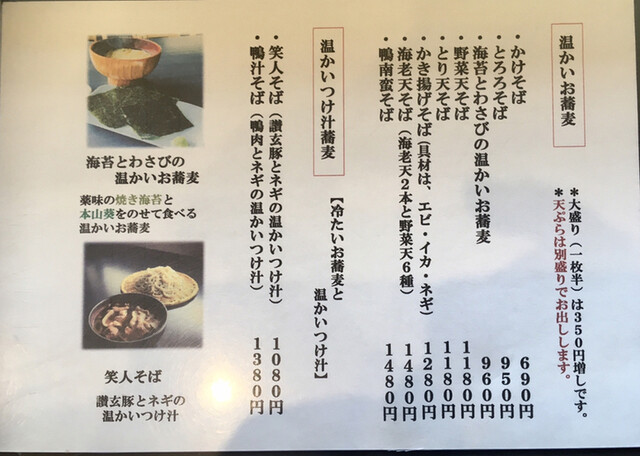 温かいお蕎麦
＊大盛り（一枚半）は３５０円増しです。
＊天ぷらは別盛りでお出しします。
・かけそば　６９０円
・とろろそば　９５０円
・海苔とわさびの温かいお蕎麦　９６０円
・野菜天そば　１１８０円
・とり天そば　１１８０円
・かき揚げそば（具材は、エビ・イカ・ネギ）　１２８０円
・海老天そば（海老天２本と野菜天６種）　１４８０円
・鴨南蛮そば　１４８０円
温かいつけ汁蕎麦
【冷たいお蕎麦と
温かいつけ汁】
・笑人そば（讃玄豚とネギの温かいつけ汁）　１０８０円
・鴨汁そば（鴨肉とネギの温かいつけ汁）　１３８０円
海苔とわさびの
温かいお蕎麦
薬味の焼き海苔と
本山葵をのせて食べる
温かいお蕎麦
笑人そば
讃玄豚とネギの
温かいつけ汁